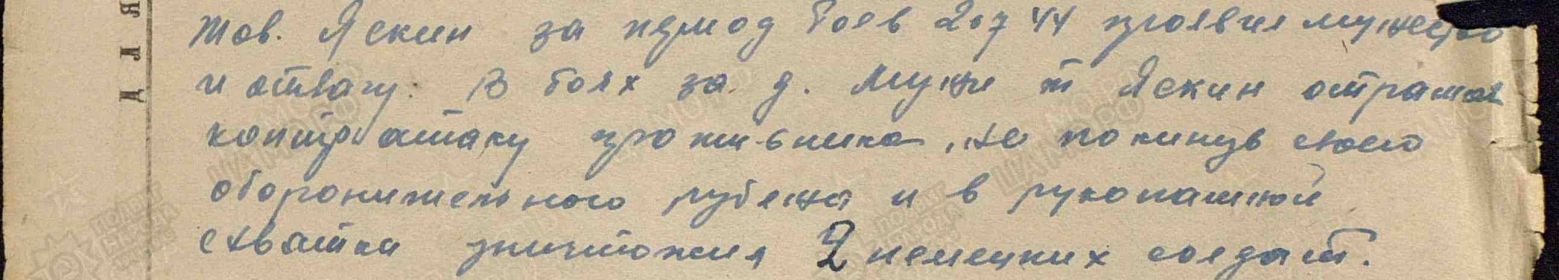 Тов. Яскин за период боев 20 7 44 проявил мужество
и отвагу. В боях за д. т Яскин отражая
контратаку противника, не покинув своего
оборонительного рубежа и в рукопашной
схватки уничтожил 2 немецких солдат.